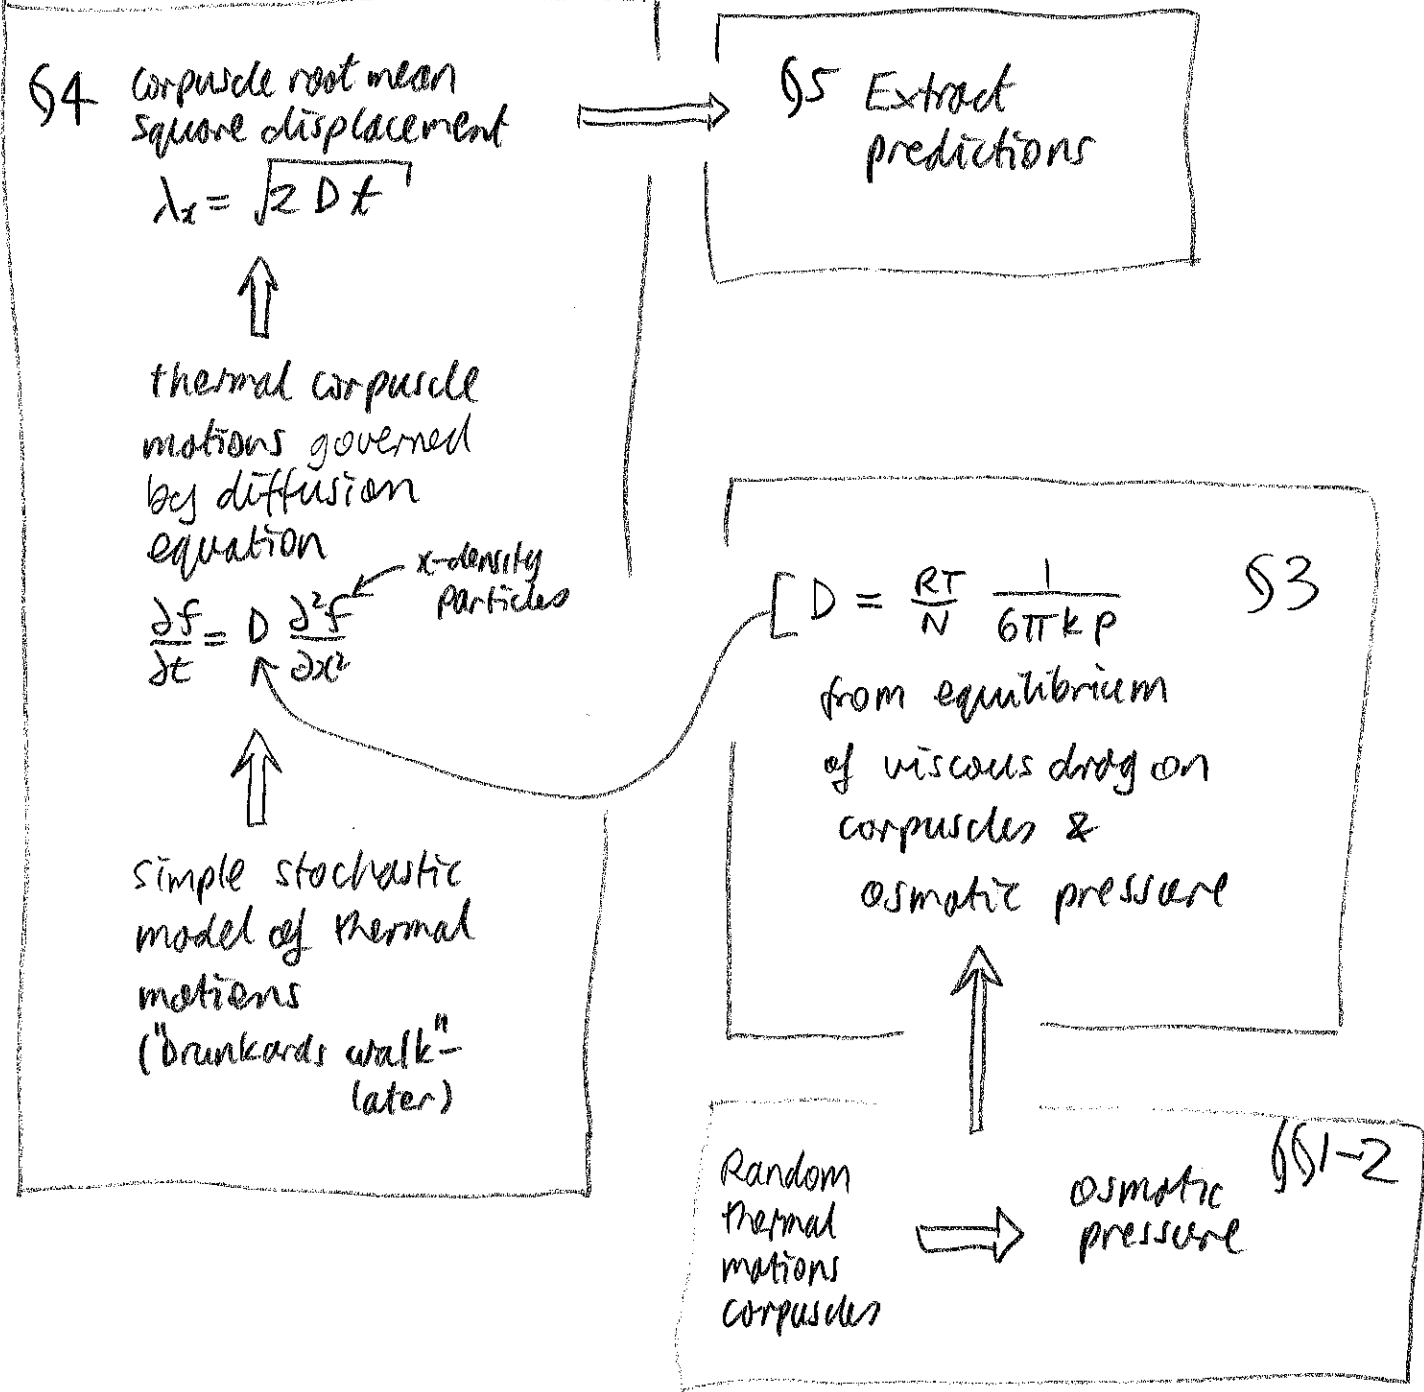 §4 corpuscle root mean
square displacement
λx = √2 D t
§5 Extract
predictions
thermal corpuscle
motions governed
by diffusion
equation
x-density
particles
∂f/∂t = D ∂²f/∂x²
simple stochastic
model of thermal
motions
("Drunkards walk"-
later)
D = RT/N 1/6πkP §3
from equilibrium
of viscous drag on
corpuscles &
osmotic pressure
Random
thermal
motions
corpuscles
osmotic
pressure
§§1-2